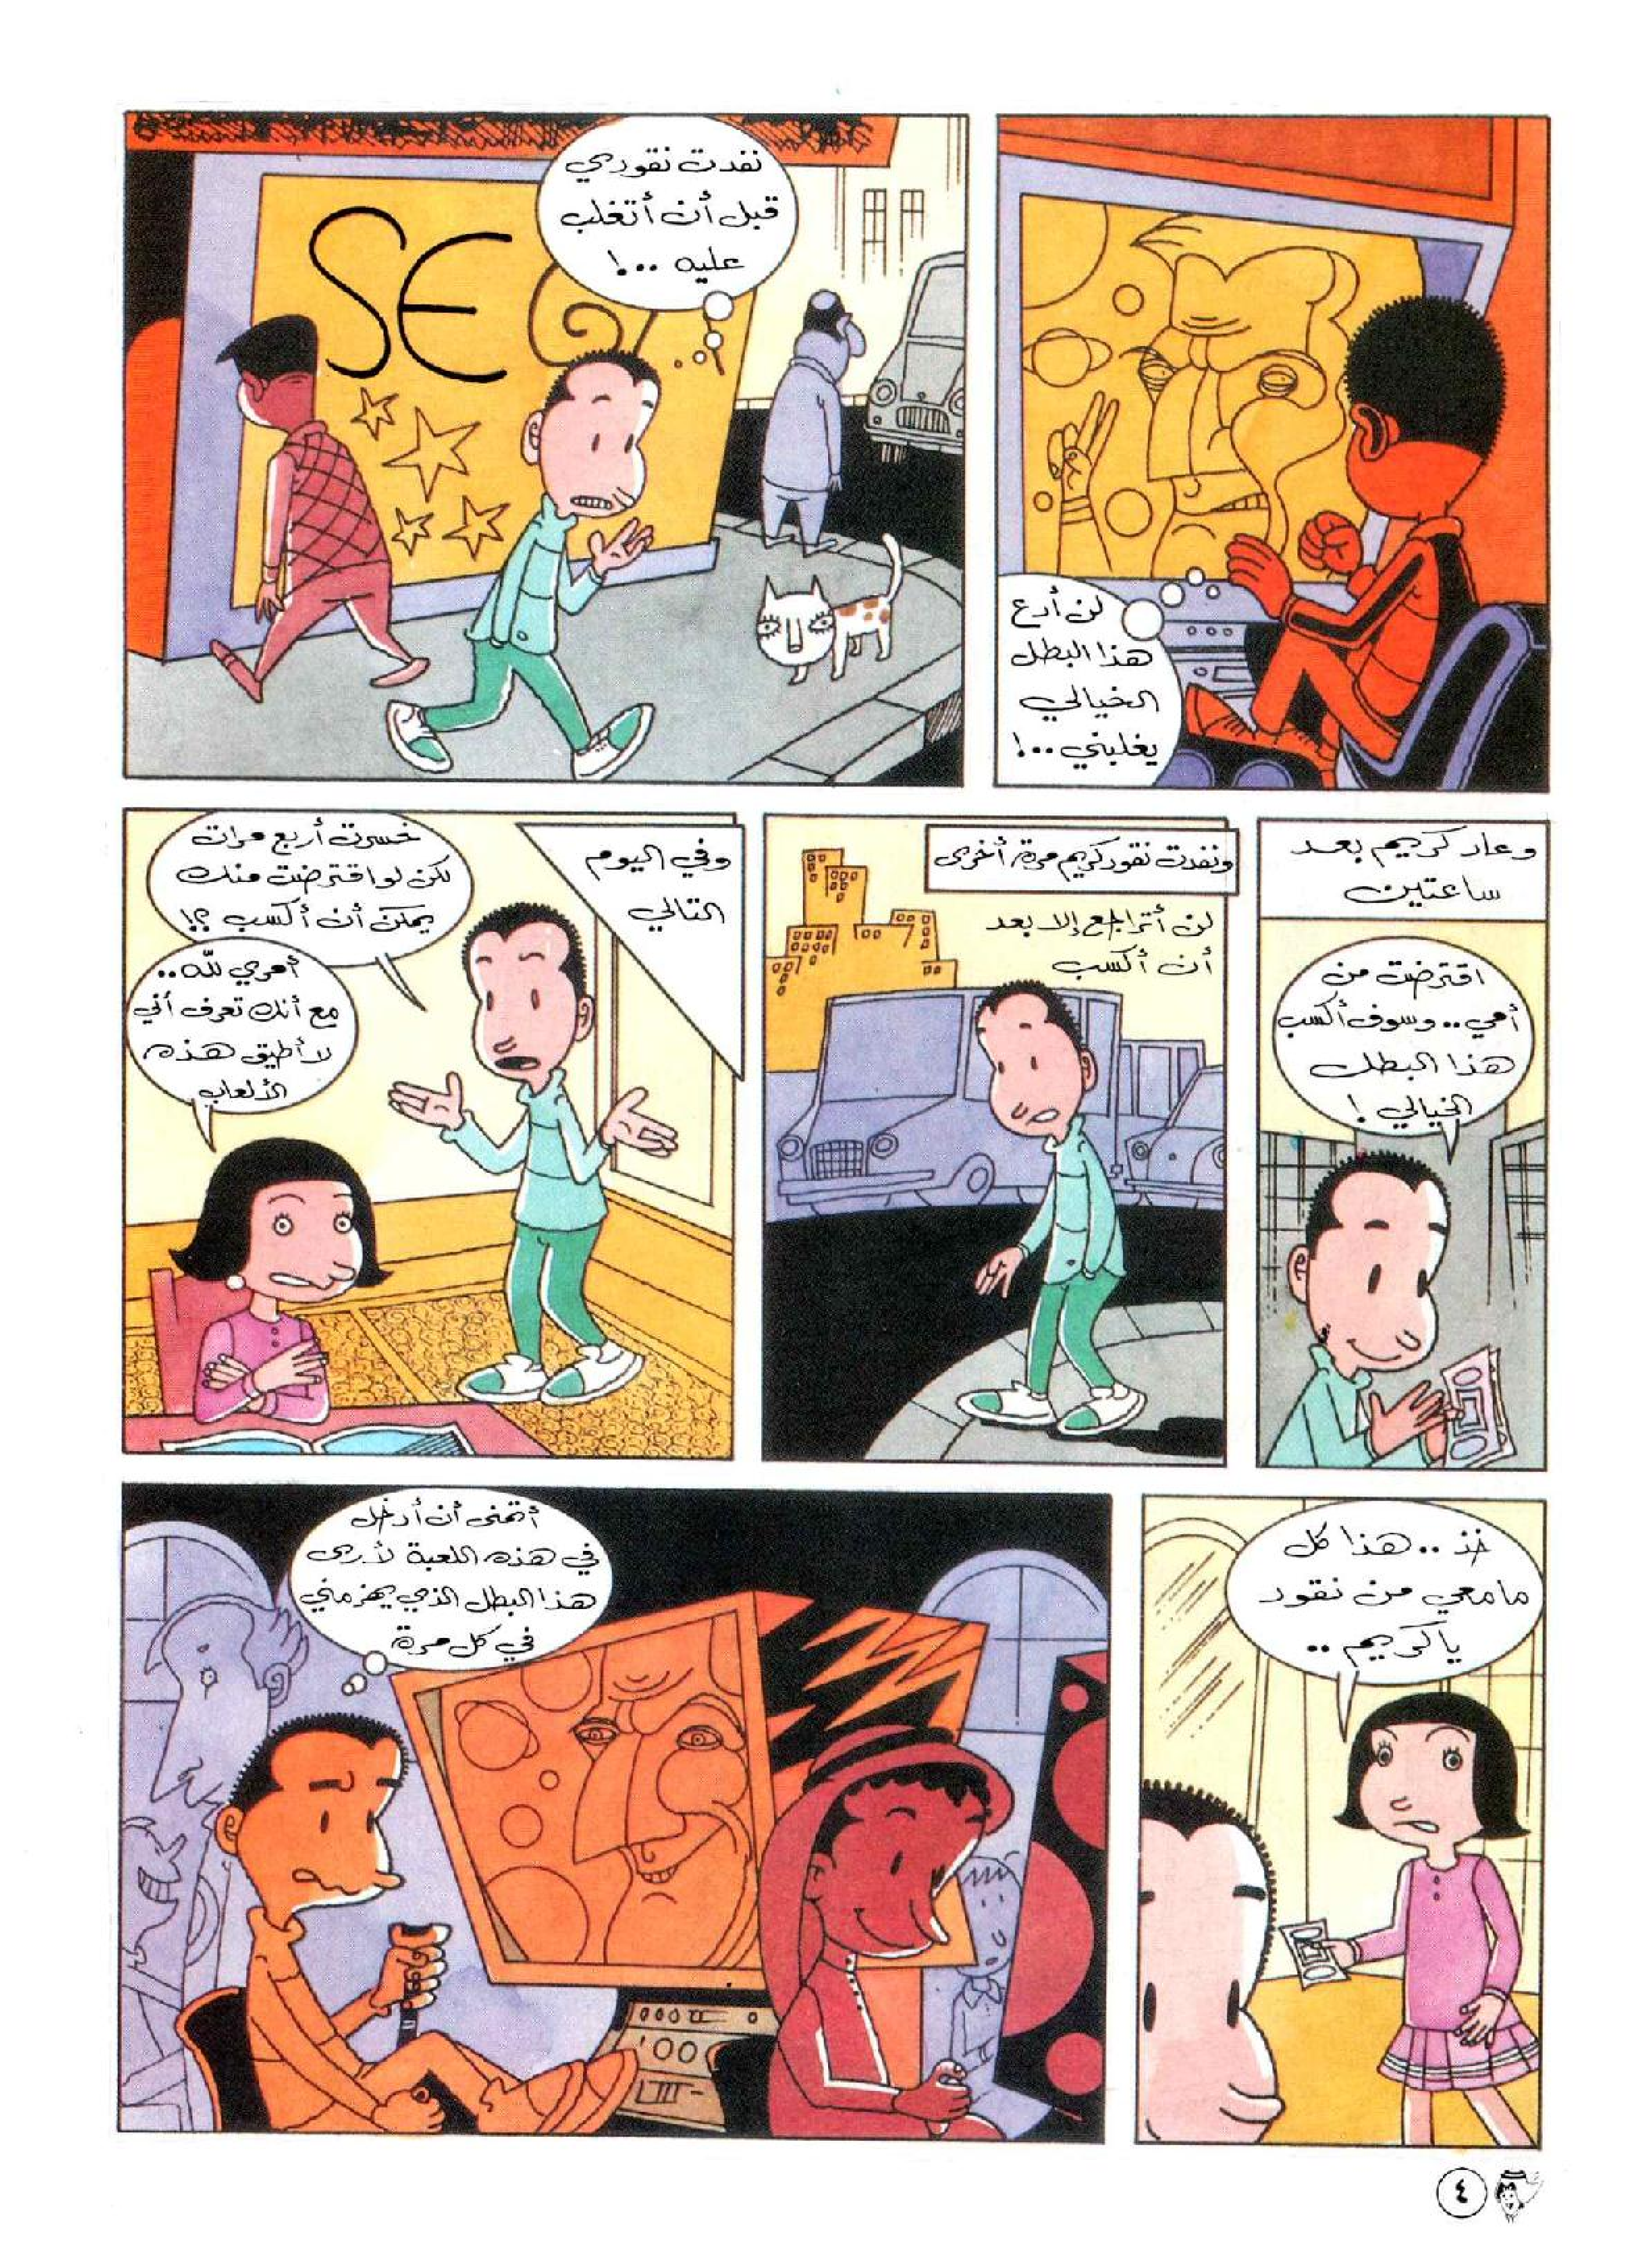 لن أدع
هذا البطل
الخيالي
يغلبني..!
نفدت نقودي
قبل أن أتغلب
عليه ..!
SEG
وعاد كريم بعد
ساعتين
اقترضت من
أمي.. وسوف أكسب
هذا البطل
الخيالي !
ونفدت نقود كريم مرة أخرى
لن أتراجع إلا بعد
أن أكسب
وفي اليوم
التالي
خسرت أربع مرات
لكن لو اقترضت منك
يمكن أن أكسب ؟!
أمري لله..
مع أنك تعرف أني
لا أطيق هذه
الألعاب
خذ .. هذا كل
ما معي من نقود
يا كريم ..
أتمنى أن أدخل
في هذه اللعبة لأرى
هذا البطل الذي يهزمني
في كل مرة
٤